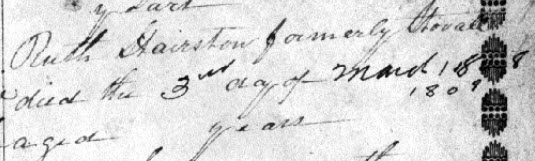 years
Ruth Hairston formerly Stovall
died the 3rd day of March 18 8
1809
aged years